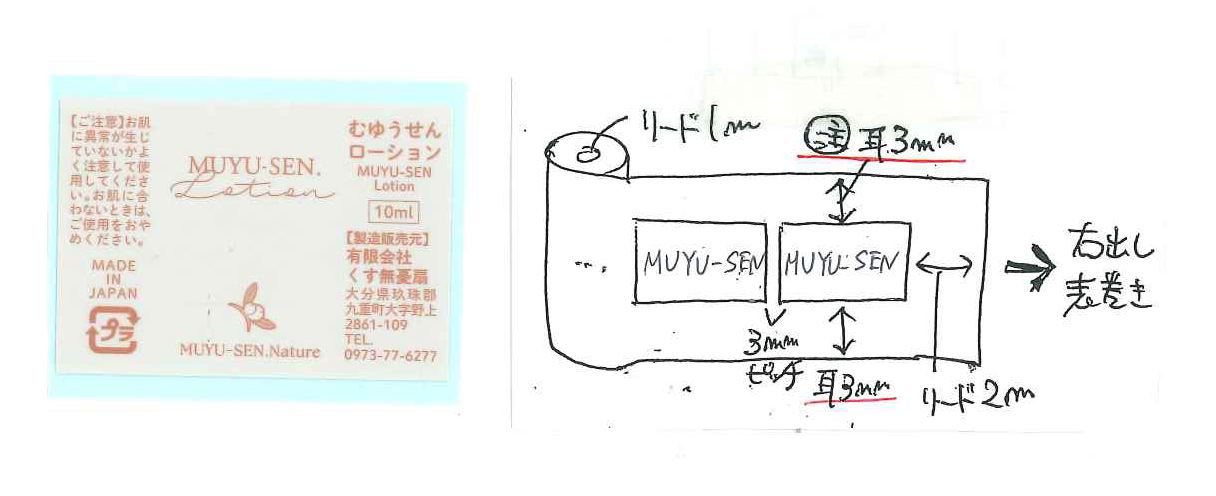 【ご注意】お肌
に異常が生じ
ていないかよ
く注意して使
用してくださ
い。お肌に合
わないときは、
ご使用をおや
めください。
MADE
IN
JAPAN
プラ
MUYU-SEN.
Lotion
MUYU-SEN.Nature
むゆうせん
ローション
MUYU-SEN
Lotion
10ml
【製造販売元】
有限会社
くす無憂扇
大分県玖珠郡
九重町大字野上
2861-109
TEL.
0973-77-6277
リード1m
注 耳3mm
... MUYU-SEN MUYU-SEN
右出し
表巻き
3mm
ピッチ
耳3mm
リード2m